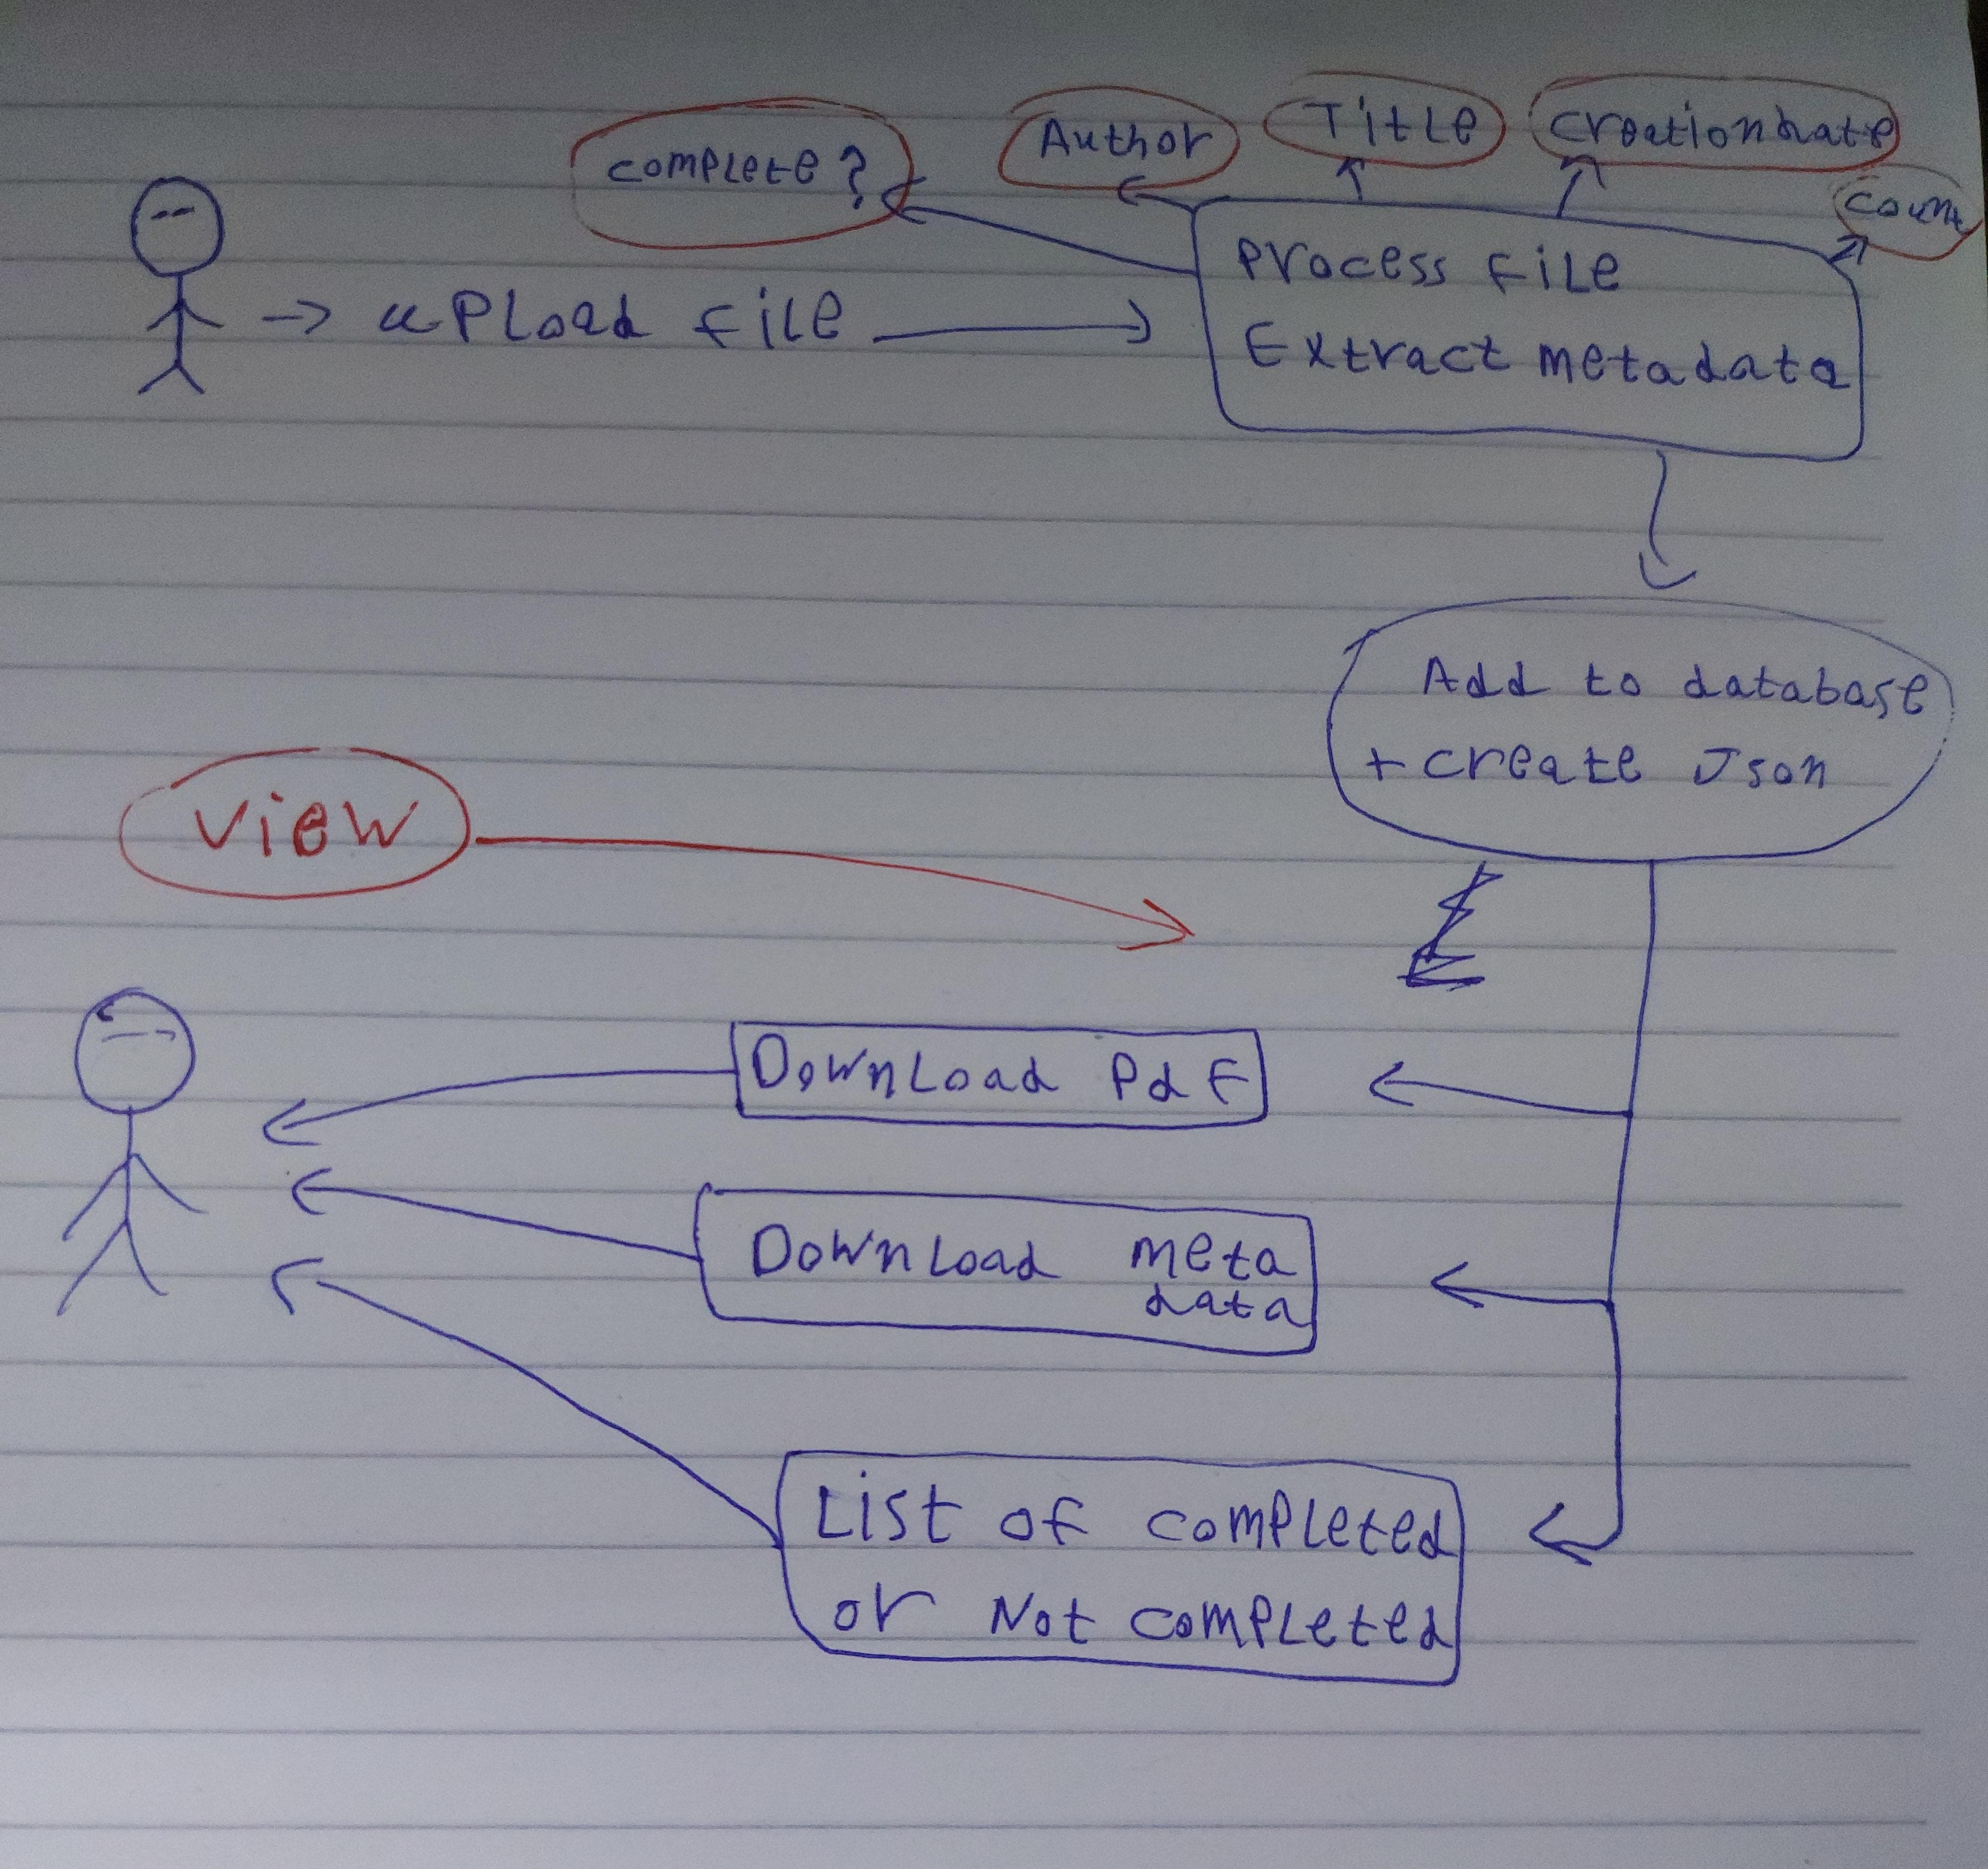 complete?
Author
Title
creationdate
count
upload file
Process file
Extract metadata
Add to database
+ create Json
view
Download Pdf
Download meta
data
List of completed
or Not completed